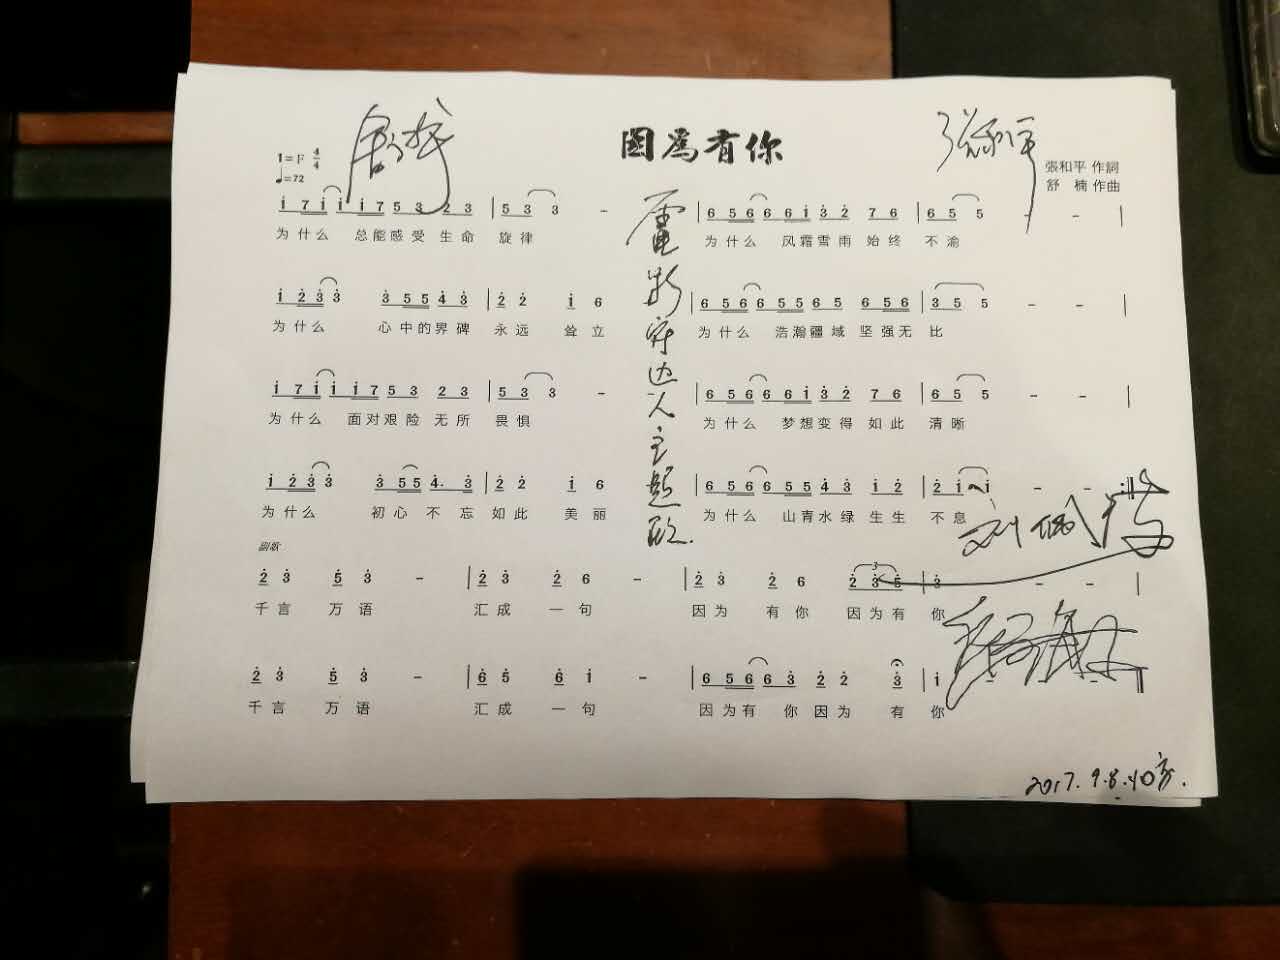 因爲有你
張和平 作詞
舒楠 作曲
1=F 4/4
♩=72
i 7 i i i 7 5 3 2 3 | 5 3 3 - | 6 5 6 6 6 i 3 2 7 6 | 6 5 5 - - |
为什么 总能感受 生命 旋律 为什么 风霜雪雨 始终 不渝
i 2 3 3 3 5 5 4 3 | 2 2 i 6 | 6 5 6 6 5 5 6 5 6 5 6 | 3 5 5 - - |
为什么 心中的界碑 永远 耸立 为什么 浩瀚疆域 坚强无比
i 7 i i i 7 5 3 2 3 | 5 3 3 - | 6 5 6 6 6 i 3 2 7 6 | 6 5 5 - - |
为什么 面对艰险 无所 畏惧 为什么 梦想变得 如此 清晰
i 2 3 3 3 5 5 4. 3 | 2 2 i 6 | 6 5 6 6 5 5 4 3 i 2 | 2 i i - - :||
为什么 初心不忘 如此 美丽 为什么 山青水绿 生生 不息
副歌
2 3 5 3 - | 2 3 2 6 - | 2 3 2 6 2 3 5 | 3 - - - |
千言 万语 汇成 一句 因为 有你 因为有 你
2 3 5 3 - | 6 5 6 i - | 6 5 6 6 3 2 2 3 | i - - - ||
千言 万语 汇成 一句 因为有 你 因为 有 你
张和平
守边人主题歌.
2017.9.8.